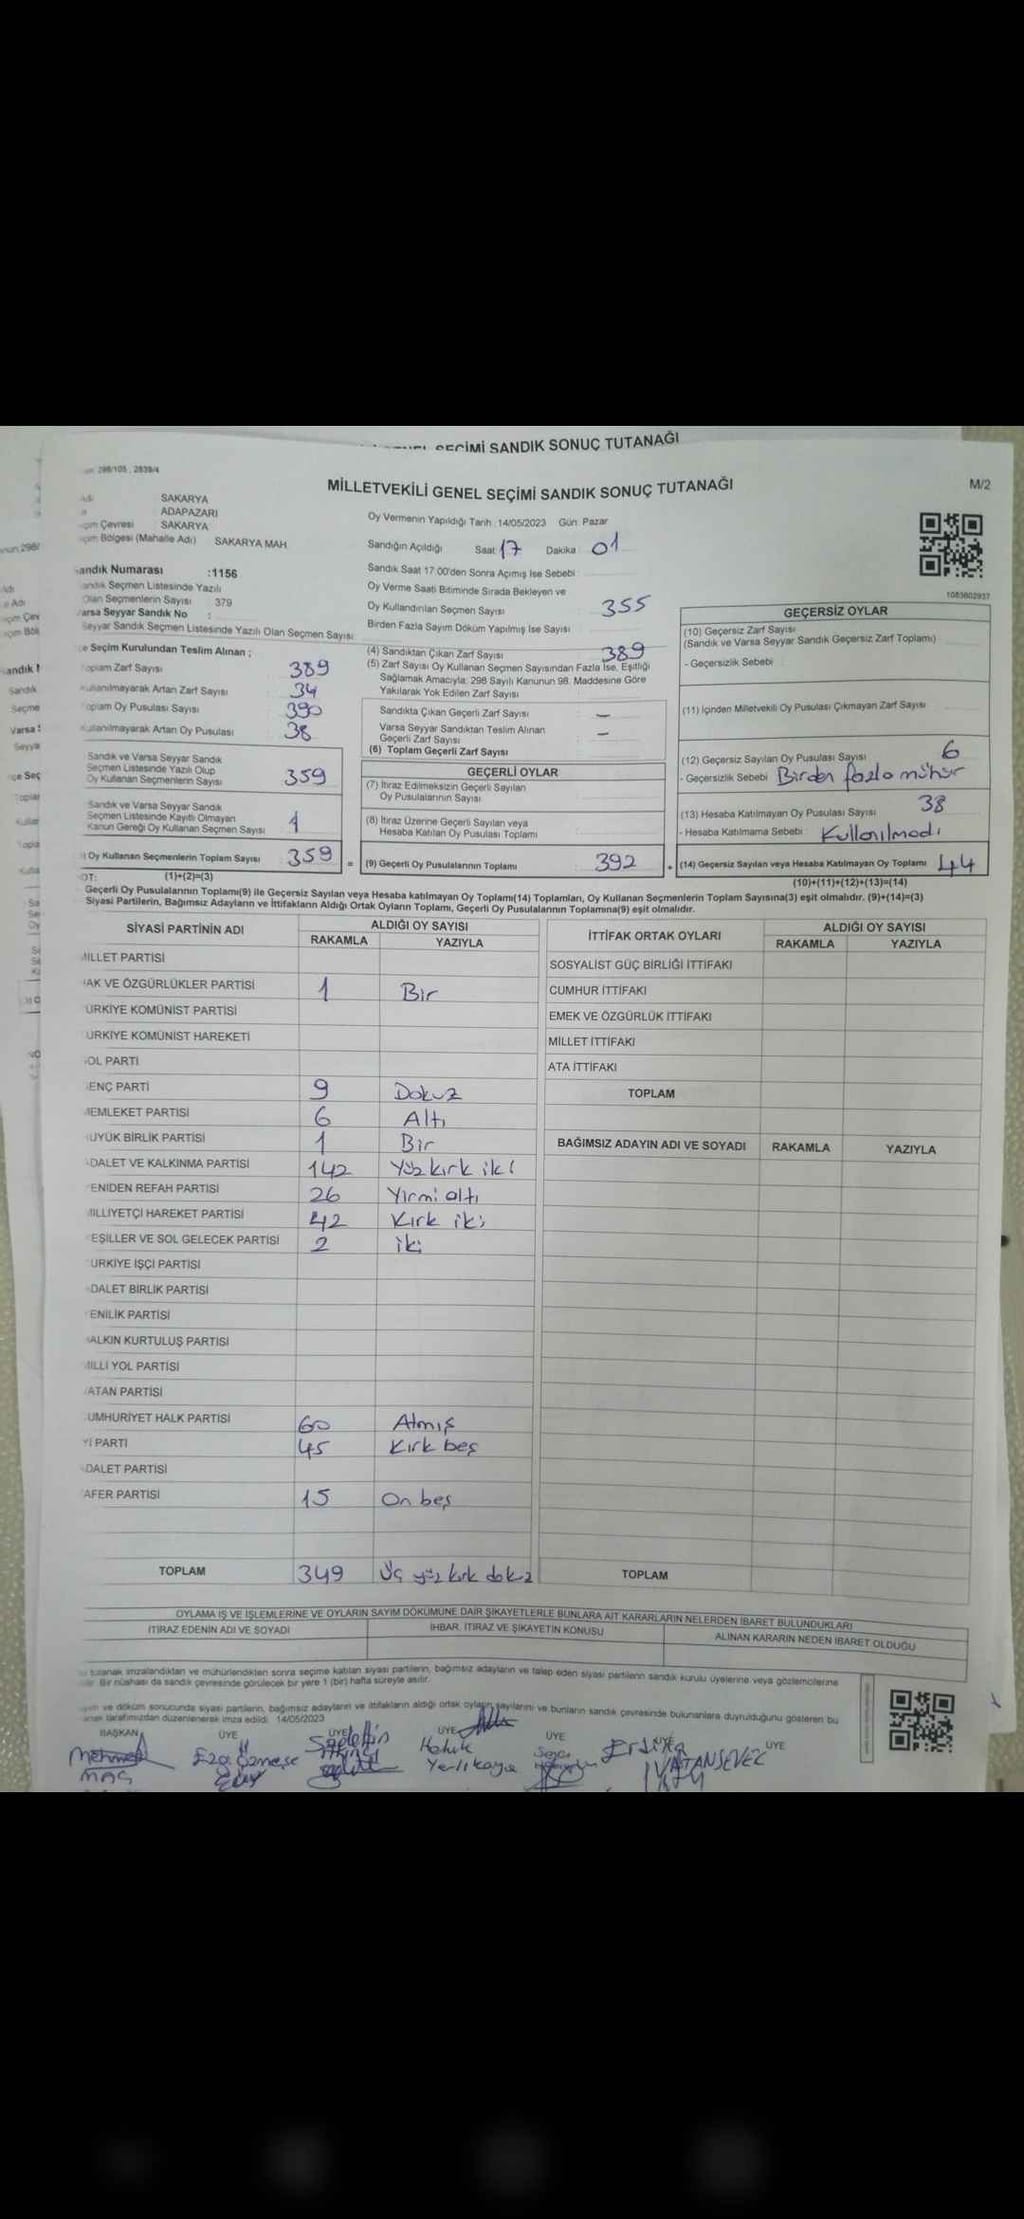 GENEL SEÇİMİ SANDIK SONUÇ TUTANAĞI
298/105, 2839/4
MİLLETVEKİLİ GENEL SEÇİMİ SANDIK SONUÇ TUTANAĞI
M/2
SAKARYA
ADAPAZARI
Çevresi SAKARYA
Bölgesi (Mahalle Adı) SAKARYA MAH
andık Numarası :1156
Seçmen Listesinde Yazılı
Olan Seçmenlerin Sayısı 379
arsa Seyyar Sandık No :
Seyyar Sandık Seçmen Listesinde Yazılı Olan Seçmen Sayısı
Oy Vermenin Yapıldığı Tarih :14/05/2023 Gün: Pazar
Sandığın Açıldığı Saat 17 Dakika 01
Sandık Saat 17.00'den Sonra Açımış İse Sebebi
Oy Verme Saati Bitiminde Sırada Bekleyen ve
Oy Kullandırılan Seçmen Sayısı : 355
Birden Fazla Sayım Döküm Yapılmış İse Sayısı
1083602937
e Seçim Kurulundan Teslim Alınan ;
oplam Zarf Sayısı 389
ullanılmayarak Artan Zarf Sayısı 34
oplam Oy Pusulası Sayısı 390
ullanılmayarak Artan Oy Pusulası 38
Sandık ve Varsa Seyyar Sandık
Seçmen Listesinde Yazılı Olup
Oy Kullanan Seçmenlerin Sayısı 359
Sandık ve Varsa Seyyar Sandık
Seçmen Listesinde Kayıtlı Olmayan
Kanun Gereği Oy Kullanan Seçmen Sayısı 1
Oy Kullanan Seçmenlerin Toplam Sayısı 359 =
(1)+(2)=(3)
(4) Sandıktan Çıkan Zarf Sayısı 389
(5) Zarf Sayısı Oy Kullanan Seçmen Sayısından Fazla İse, Eşitliği
Sağlamak Amacıyla; 298 Sayılı Kanunun 98. Maddesine Göre
Yakılarak Yok Edilen Zarf Sayısı
Sandıkta Çıkan Geçerli Zarf Sayısı : –
Varsa Seyyar Sandıktan Teslim Alınan
Geçerli Zarf Sayısı : –
(6) Toplam Geçerli Zarf Sayısı
GEÇERLİ OYLAR
(7) İtiraz Edilmeksizin Geçerli Sayılan
Oy Pusulalarının Sayısı
(8) İtiraz Üzerine Geçerli Sayılan veya
Hesaba Katılan Oy Pusulası Toplamı
(9) Geçerli Oy Pusulalarının Toplamı 392 +
GEÇERSİZ OYLAR
(10) Geçersiz Zarf Sayısı
(Sandık ve Varsa Seyyar Sandık Geçersiz Zarf Toplamı)
- Geçersizlik Sebebi
(11) İçinden Milletvekili Oy Pusulası Çıkmayan Zarf Sayısı
(12) Geçersiz Sayılan Oy Pusulası Sayısı 6
- Geçersizlik Sebebi Birden fazla mühür
(13) Hesaba Katılmayan Oy Pusulası Sayısı 38
- Hesaba Katılmama Sebebi Kullanılmadı
(14) Geçersiz Sayılan veya Hesaba Katılmayan Oy Toplamı 44
(10)+(11)+(12)+(13)=(14)
OT:
Geçerli Oy Pusulalarının Toplamı(9) ile Geçersiz Sayılan veya Hesaba katılmayan Oy Toplamı(14) Toplamları, Oy Kullanan Seçmenlerin Toplam Sayısına(3) eşit olmalıdır. (9)+(14)=(3)
Siyasi Partilerin, Bağımsız Adayların ve İttifakların Aldığı Ortak Oyların Toplamı, Geçerli Oy Pusulalarının Toplamına(9) eşit olmalıdır.
SİYASİ PARTİNİN ADI
ALDIĞI OY SAYISI
RAKAMLA YAZIYLA
MİLLET PARTİSİ
AK VE ÖZGÜRLÜKLER PARTİSİ 1 Bir
ÜRKİYE KOMÜNİST PARTİSİ
ÜRKİYE KOMÜNİST HAREKETİ
OL PARTİ
ENÇ PARTİ 9 Dokuz
MEMLEKET PARTİSİ 6 Altı
ÜYÜK BİRLİK PARTİSİ 1 Bir
DALET VE KALKINMA PARTİSİ 142 Yüz kırk iki
ENİDEN REFAH PARTİSİ 26 Yirmi altı
MİLLİYETÇİ HAREKET PARTİSİ 42 Kırk iki
EŞİLLER VE SOL GELECEK PARTİSİ 2 iki
ÜRKİYE İŞÇİ PARTİSİ
DALET BİRLİK PARTİSİ
ENİLİK PARTİSİ
ALKIN KURTULUŞ PARTİSİ
MİLLİ YOL PARTİSİ
ATAN PARTİSİ
UMHURİYET HALK PARTİSİ 60 Atmış
Yİ PARTİ 45 Kırk beş
DALET PARTİSİ
AFER PARTİSİ 15 On beş
TOPLAM 349 Üç yüz kırk dokuz
İTTİFAK ORTAK OYLARI
ALDIĞI OY SAYISI
RAKAMLA YAZIYLA
SOSYALİST GÜÇ BİRLİĞİ İTTİFAKI
CUMHUR İTTİFAKI
EMEK VE ÖZGÜRLÜK İTTİFAKI
MİLLET İTTİFAKI
ATA İTTİFAKI
TOPLAM
BAĞIMSIZ ADAYIN ADI VE SOYADI RAKAMLA YAZIYLA
TOPLAM
OYLAMA İŞ VE İŞLEMLERİNE VE OYLARIN SAYIM DÖKÜMÜNE DAİR ŞİKAYETLERLE BUNLARA AİT KARARLARIN NELERDEN İBARET BULUNDUKLARI
İTİRAZ EDENİN ADI VE SOYADI
İHBAR, İTİRAZ VE ŞİKAYETİN KONUSU
ALINAN KARARIN NEDEN İBARET OLDUĞU
tutanak imzalandıktan ve mühürlendikten sonra seçime katılan siyasi partilerin, bağımsız adayların ve talep eden siyasi partilerin sandık kurulu üyelerine veya gözlemcilerine
Bir nüshası da sandık çevresinde görülecek bir yere 1 (bir) hafta süreyle asılır.
ve döküm sonucunda siyasi partilerin, bağımsız adayların ve ittifakların aldığı ortak oyların sayılarını ve bunların sandık çevresinde bulunanlara duyrulduğunu gösteren bu
tarafımızdan düzenlenerek imza edildi. 14/05/2023
BAŞKAN ÜYE ÜYE ÜYE ÜYE ÜYE ÜYE
Mehmet
MAÇ
Haluk
Yerlikaya
VATANSEVER